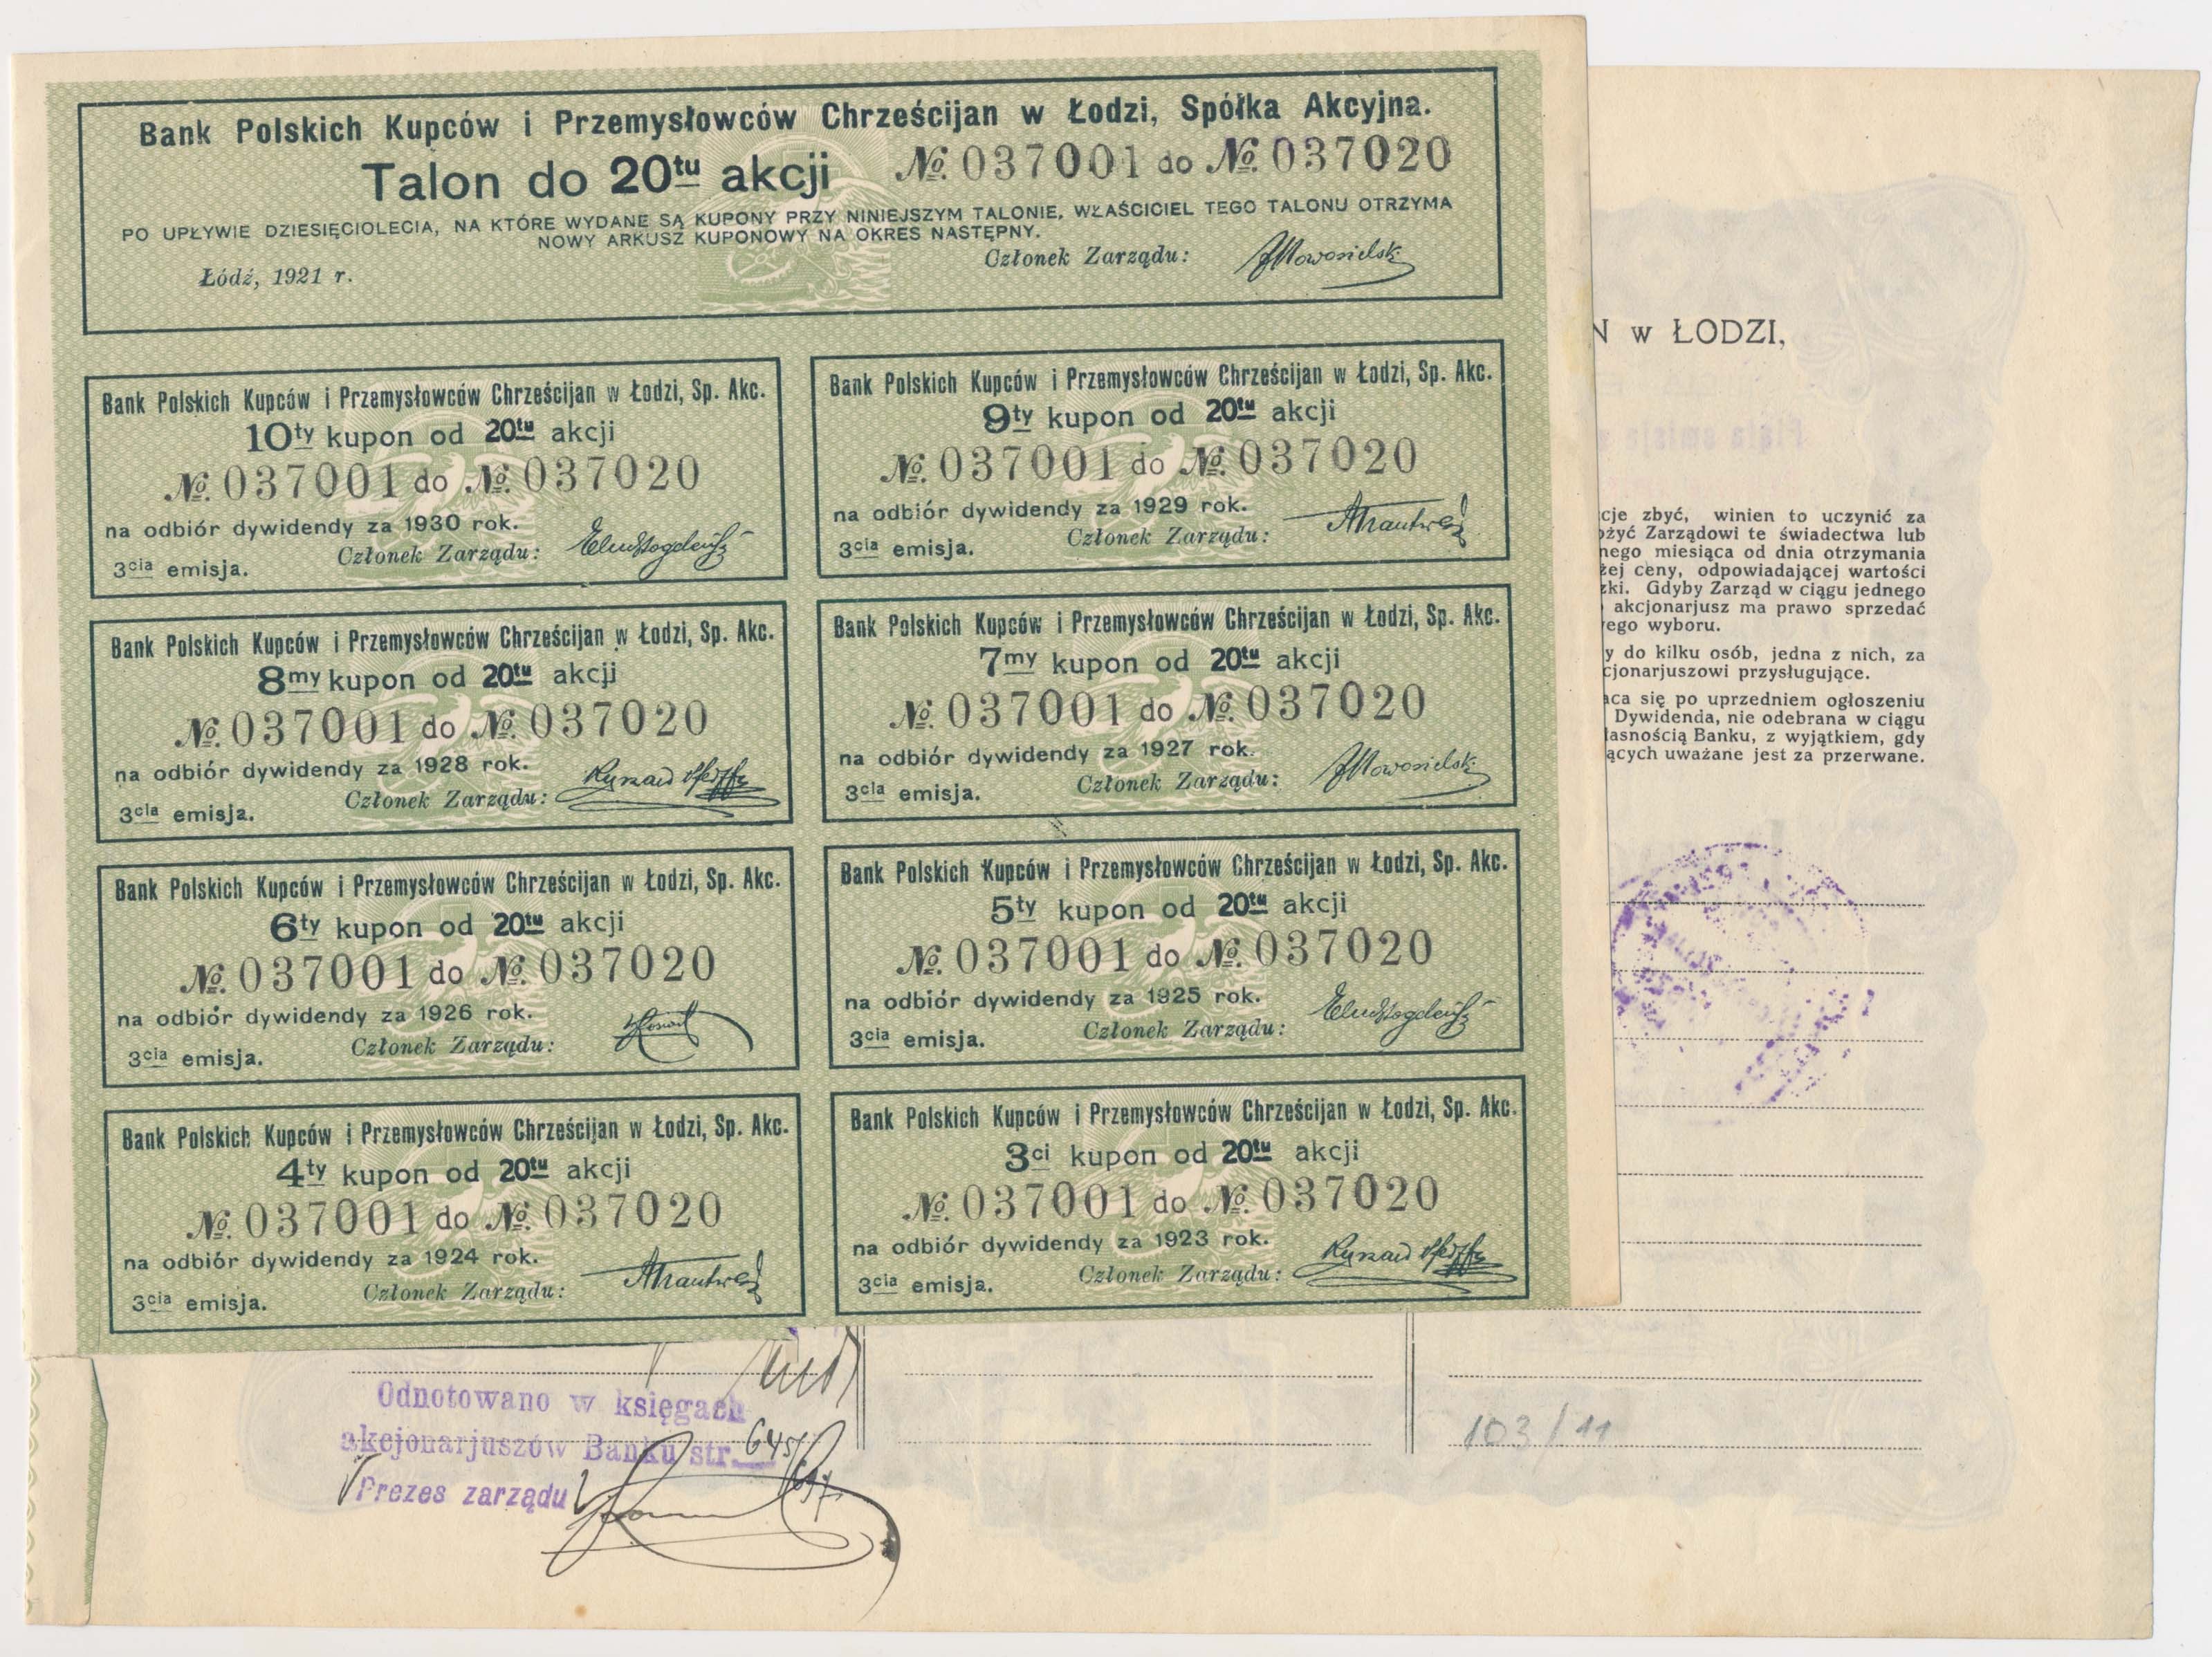 Bank Polskich Kupców i Przemysłowców Chrześcijan w Łodzi, Spółka Akcyjna.
Talon do 20tu akcji № 037001 do № 037020
PO UPŁYWIE DZIESIĘCIOLECIA, NA KTÓRE WYDANE SĄ KUPONY PRZY NINIEJSZYM TALONIE, WŁAŚCICIEL TEGO TALONU OTRZYMA
NOWY ARKUSZ KUPONOWY NA OKRES NASTĘPNY.
Członek Zarządu:
Łódź, 1921 r.
Bank Polskich Kupców i Przemysłowców Chrześcijan w Łodzi, Sp. Akc.
10ty kupon od 20tu akcji
№ 037001 do № 037020
na odbiór dywidendy za 1930 rok.
Członek Zarządu:
3cia emisja.
Bank Polskich Kupców i Przemysłowców Chrześcijan w Łodzi, Sp. Akc.
9ty kupon od 20tu akcji
№ 037001 do № 037020
na odbiór dywidendy za 1929 rok.
Członek Zarządu:
3cia emisja.
Bank Polskich Kupców i Przemysłowców Chrześcijan w Łodzi, Sp. Akc.
8my kupon od 20tu akcji
№ 037001 do № 037020
na odbiór dywidendy za 1928 rok.
Członek Zarządu:
3cia emisja.
Bank Polskich Kupców i Przemysłowców Chrześcijan w Łodzi, Sp. Akc.
7my kupon od 20tu akcji
№ 037001 do № 037020
na odbiór dywidendy za 1927 rok.
Członek Zarządu:
3cia emisja.
Bank Polskich Kupców i Przemysłowców Chrześcijan w Łodzi, Sp. Akc.
6ty kupon od 20tu akcji
№ 037001 do № 037020
na odbiór dywidendy za 1926 rok.
Członek Zarządu:
3cia emisja.
Bank Polskich Kupców i Przemysłowców Chrześcijan w Łodzi, Sp. Akc.
5ty kupon od 20tu akcji
№ 037001 do № 037020
na odbiór dywidendy za 1925 rok.
Członek Zarządu:
3cia emisja.
Bank Polskich Kupców i Przemysłowców Chrześcijan w Łodzi, Sp. Akc.
4ty kupon od 20tu akcji
№ 037001 do № 037020
na odbiór dywidendy za 1924 rok.
Członek Zarządu:
3cia emisja.
Bank Polskich Kupców i Przemysłowców Chrześcijan w Łodzi, Sp. Akc.
3ci kupon od 20tu akcji
№ 037001 do № 037020
na odbiór dywidendy za 1923 rok.
Członek Zarządu:
3cia emisja.
N w ŁODZI,
cje zbyć, winien to uczynić za
żyć Zarządowi te świadectwa lub
nego miesiąca od dnia otrzymania
żej ceny, odpowiadającej wartości
zki. Gdyby Zarząd w ciągu jednego
akcjonarjusz ma prawo sprzedać
ego wyboru.
y do kilku osób, jedna z nich, za
cjonarjuszowi przysługujące.
aca się po uprzedniem ogłoszeniu
Dywidenda, nie odebrana w ciągu
łasnością Banku, z wyjątkiem, gdy
ących uważane jest za przerwane.
Odnotowano w księgach
akcjonarjuszów Banku str. 645/
Prezes zarządu
103/11